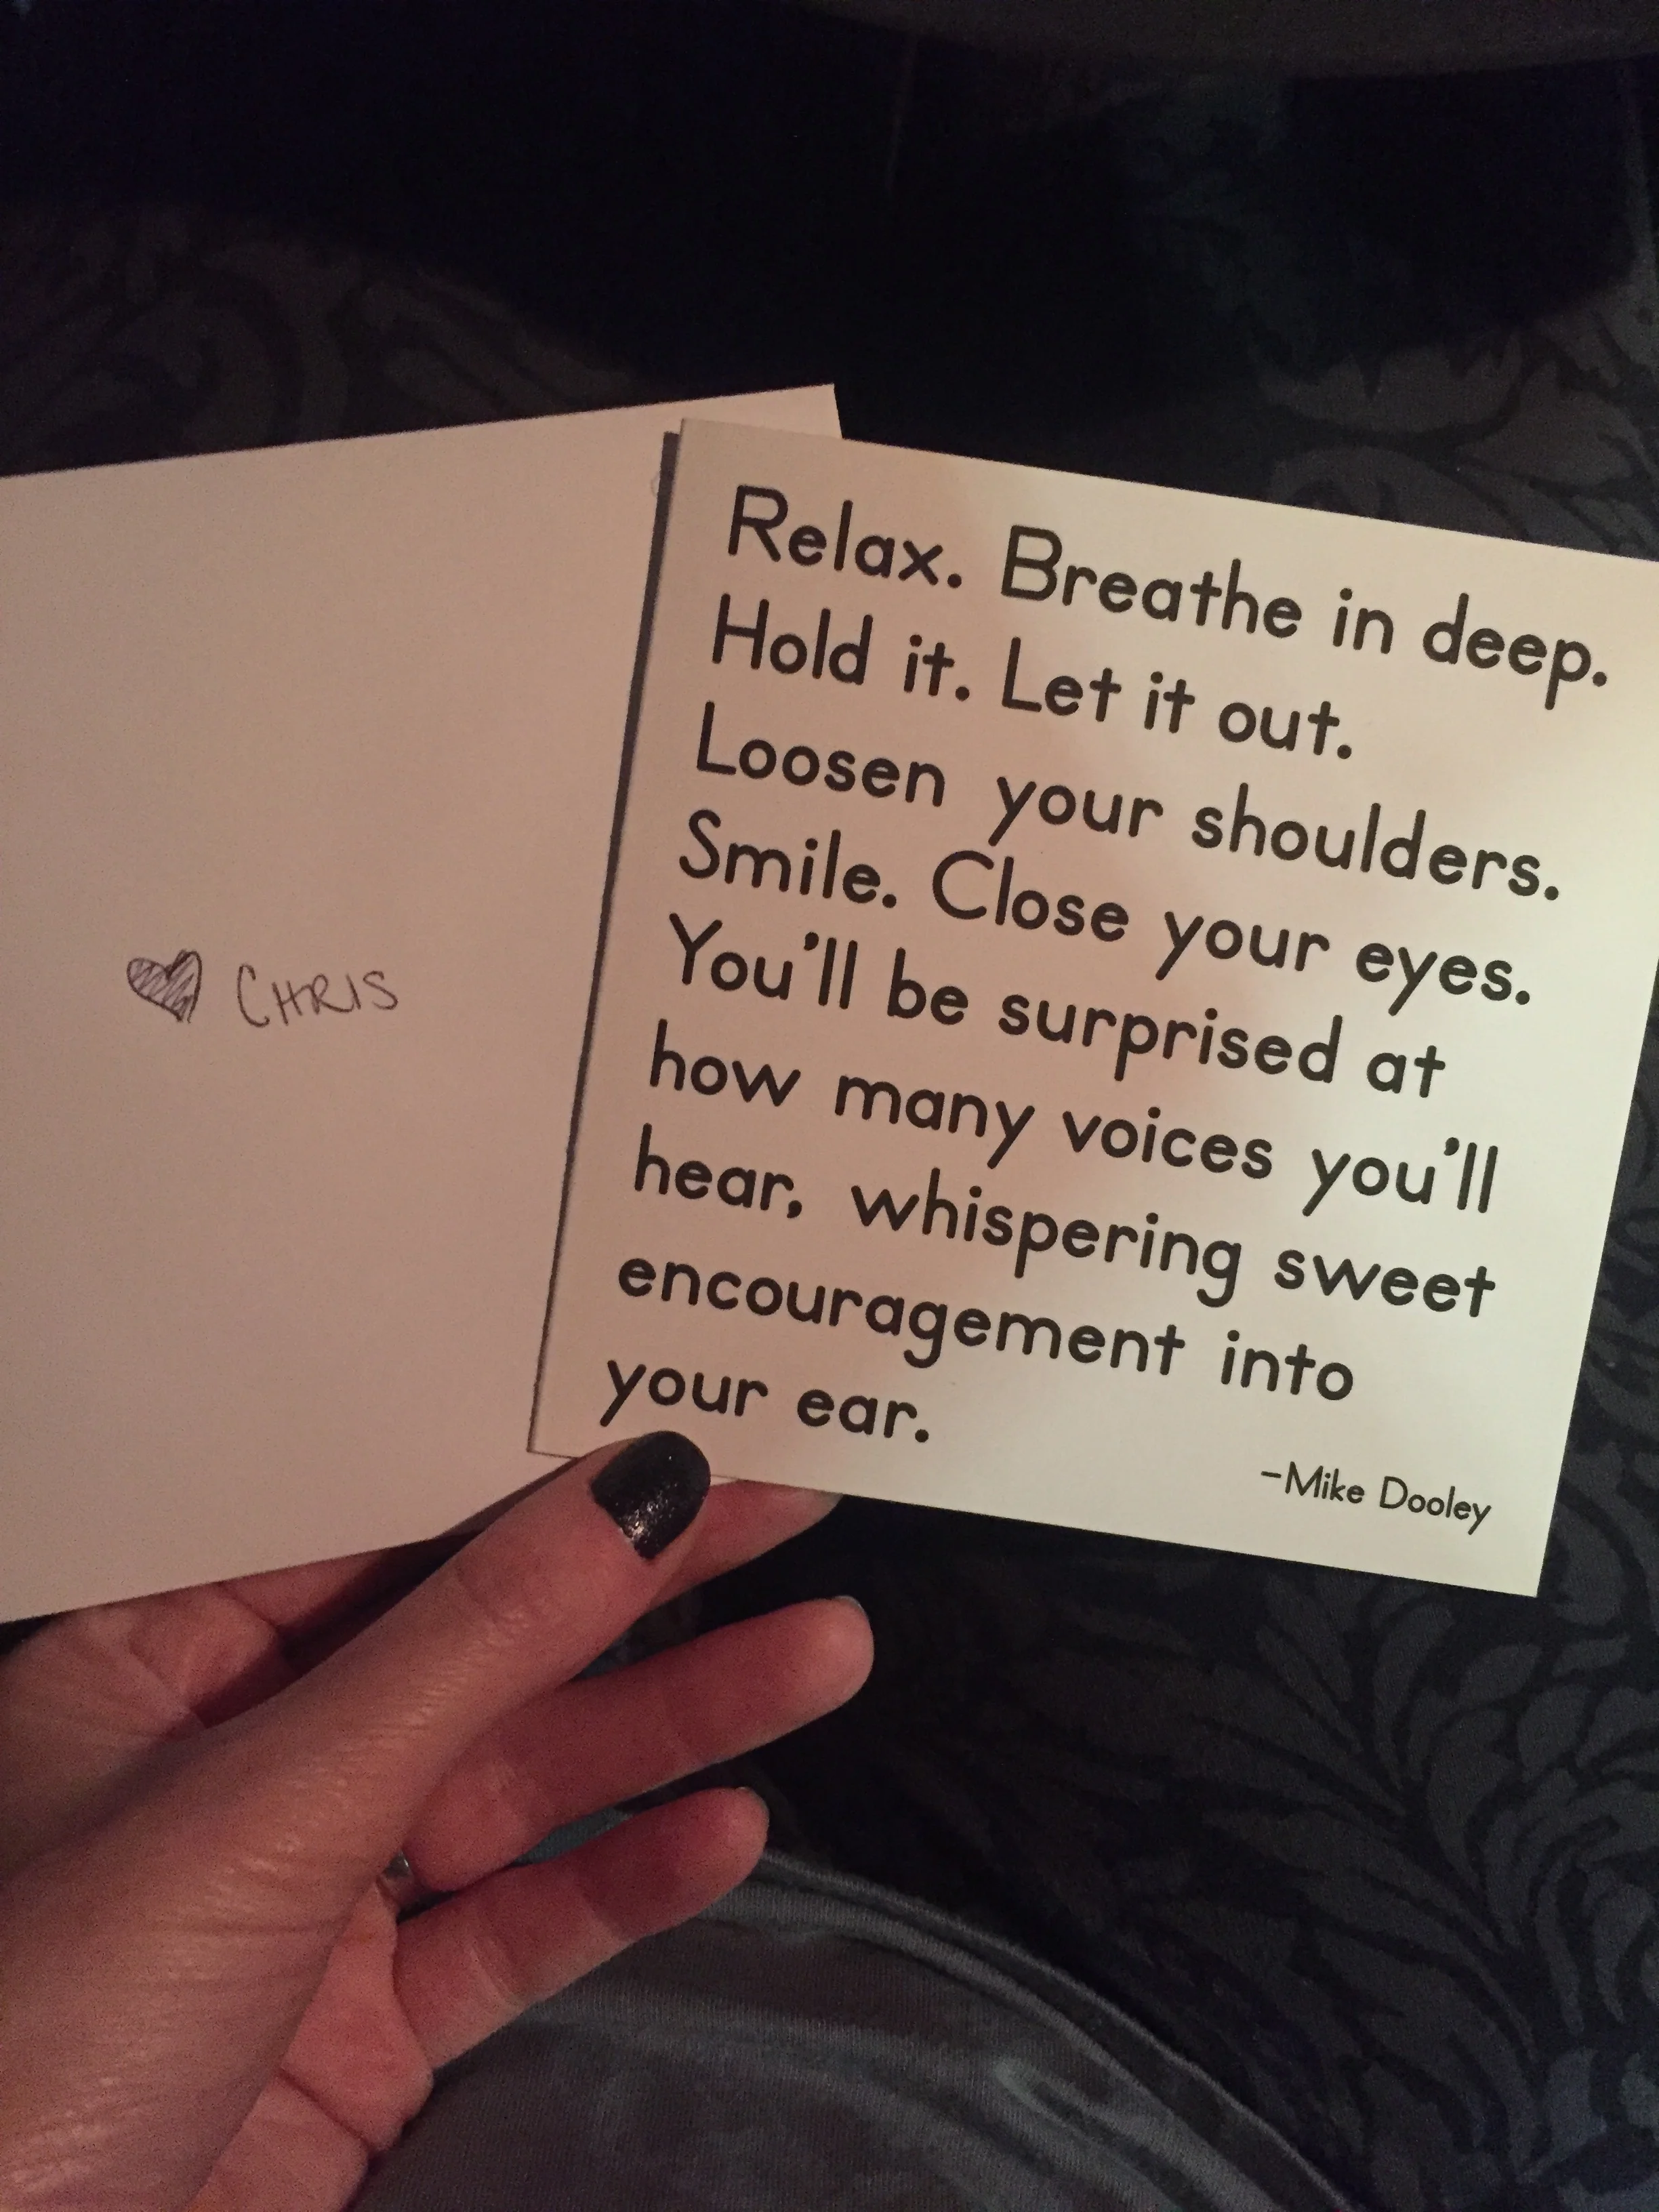 ♥ CHRIS
Relax. Breathe in deep.
Hold it. Let it out.
Loosen your shoulders.
Smile. Close your eyes.
You'll be surprised at
how many voices you'll
hear, whispering sweet
encouragement into
your ear.
-Mike Dooley